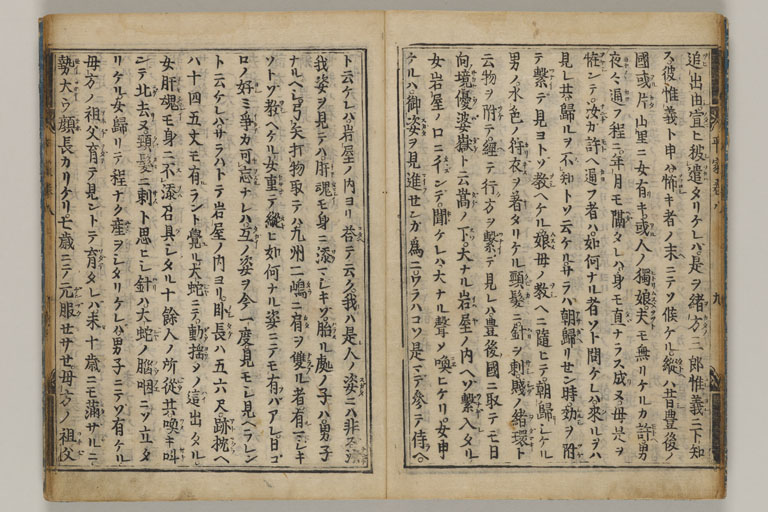 追出由宣ヒ被遣タリケレハ是ヲ緒方三郎惟義ニ下知
ス彼惟義ト申ハ怖キ者ノ末ニテソ候ケル縦ハ昔豊後ノ
國或片山里ニ女有キ或人ノ獨娘夫モ無リケルカ許ヘ男
夜々通フ程ニ年月モ隔タレハ身モ直ナラス成ヌ母是ヲ
恠シテ汝カ許ヘ通フ者ハ如何ナル者ソト問ケレハ來ルヲハ
見レ共歸ルヲ不知トソ云ケルサラハ朝歸リセン時効ヲ附
テ繋テ見ヨトソ教ヘケル娘母ノ教ヘニ隨ヒテ朝歸シケル
男ノ水色ノ狩衣ヲ著タリケル頸髪ニ針ヲ刺賤ノ緒環ト
云物ヲ附テ經テ行方ヲ繋テ見レハ豊後國ニ取テモ日
向境優婆嶽ト云嵩ノ下大ナル岩屋ノ内ヘソ繋入タル
女岩屋ノ口ニイシテ聞ケレハ大ナル聲ノ喚ヒケリ女申
ケルハ御姿ヲ見進センカ為ニワラハコソ是マテ參テ侍ヘ
ト云ケレハ岩屋ノ内ヨリ答テ云ク我ハ是人ノ姿ニハ非ス汝
我姿ヲ見テハ肝魂モ身ニ添マシキソ胎ル處ノ子ハ男子
ナルヘシ弓矢打物取テハ九州二嶋ニ肩ヲ雙ル者有マシキ
ソトソ教ヘケル女重テ縦ヒ如何ナル姿ニテモ有ハアレ日コ
ロノ好ミ爭カ可忘ナレハ互ノ姿ヲ今一度見モシ見ヘラレン
ト云ケレハサラハトテ岩屋ノ内ヨリ臥長ハ五六尺跡枕ヘ
ハ十四五丈モ有ラント覺ル大蛇ニテ動揺シテ這出タル
女肝魂モ身ニ不添召具シタル十餘人ノ所從共喚キ叫
ンテ北去ヌ頸髪ニ刺ト思ヒシ針ハ大蛇ノ脳咽ニソ立タ
リケル女歸リテ程ナク産ヲシタリケレハ男子ニテソ有ケル
母方ノ祖父育テ見ントテ育タレハ未十歳ニモ滿サルニ
勢大ウ顔長カリケリ七歳ニテ元服セサセ母方ノ祖父
平家巻八
九